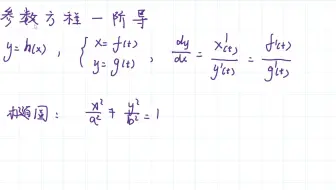 参数方程一阶导
y=h(x), { x=f(t) y=g(t) , dy/dx = x'(t)/y'(t) = f'(t)/g'(t)
椭圆: x²/a² + y²/b² = 1